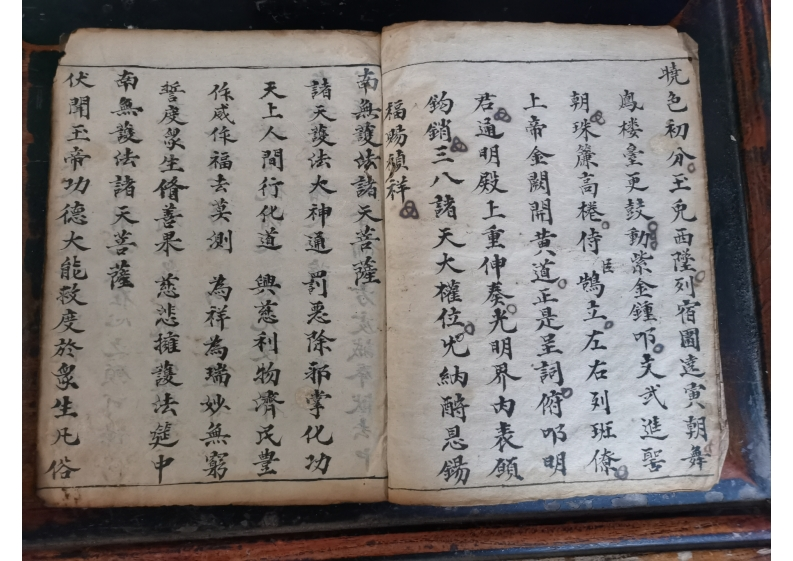 曉色初分玉兎西墜列宿圍遶寅朝舞
鳳樓臺更鼓動紫金鍾叩文武進罢
朝珠簾高棬侍臣鵠立左右列班僚
上帝金闕開黄道正是呈詞俯叩明
君通明殿上重伸奏光明界内表願
鈎銷三八諸天大權位允納酧恩錫
福賜禎祥
南無護法諸天菩薩
諸天護法大神通 罰惡除邪掌化功
天上人間行化道 興慈利物濟民豊
作威作福去莫測 為祥為瑞妙無窮
誓度衆生脩善果 慈悲擁護法筵中
南無護法諸天菩薩
伏聞玉帝功德大能救度於衆生凡俗